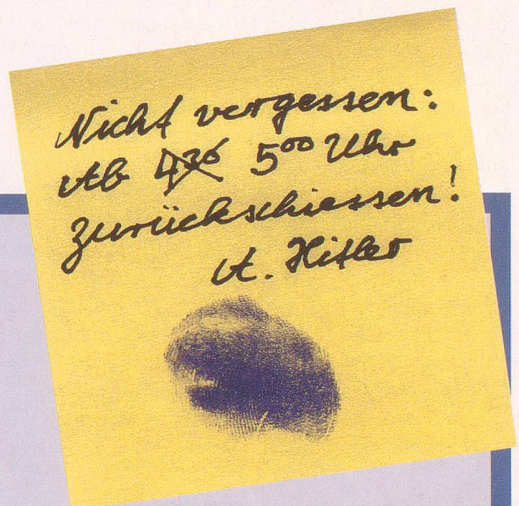 Nicht vergessen:
Ab 4³⁶ 5⁰⁰ Uhr
zurückschiessen!
A. Hitler